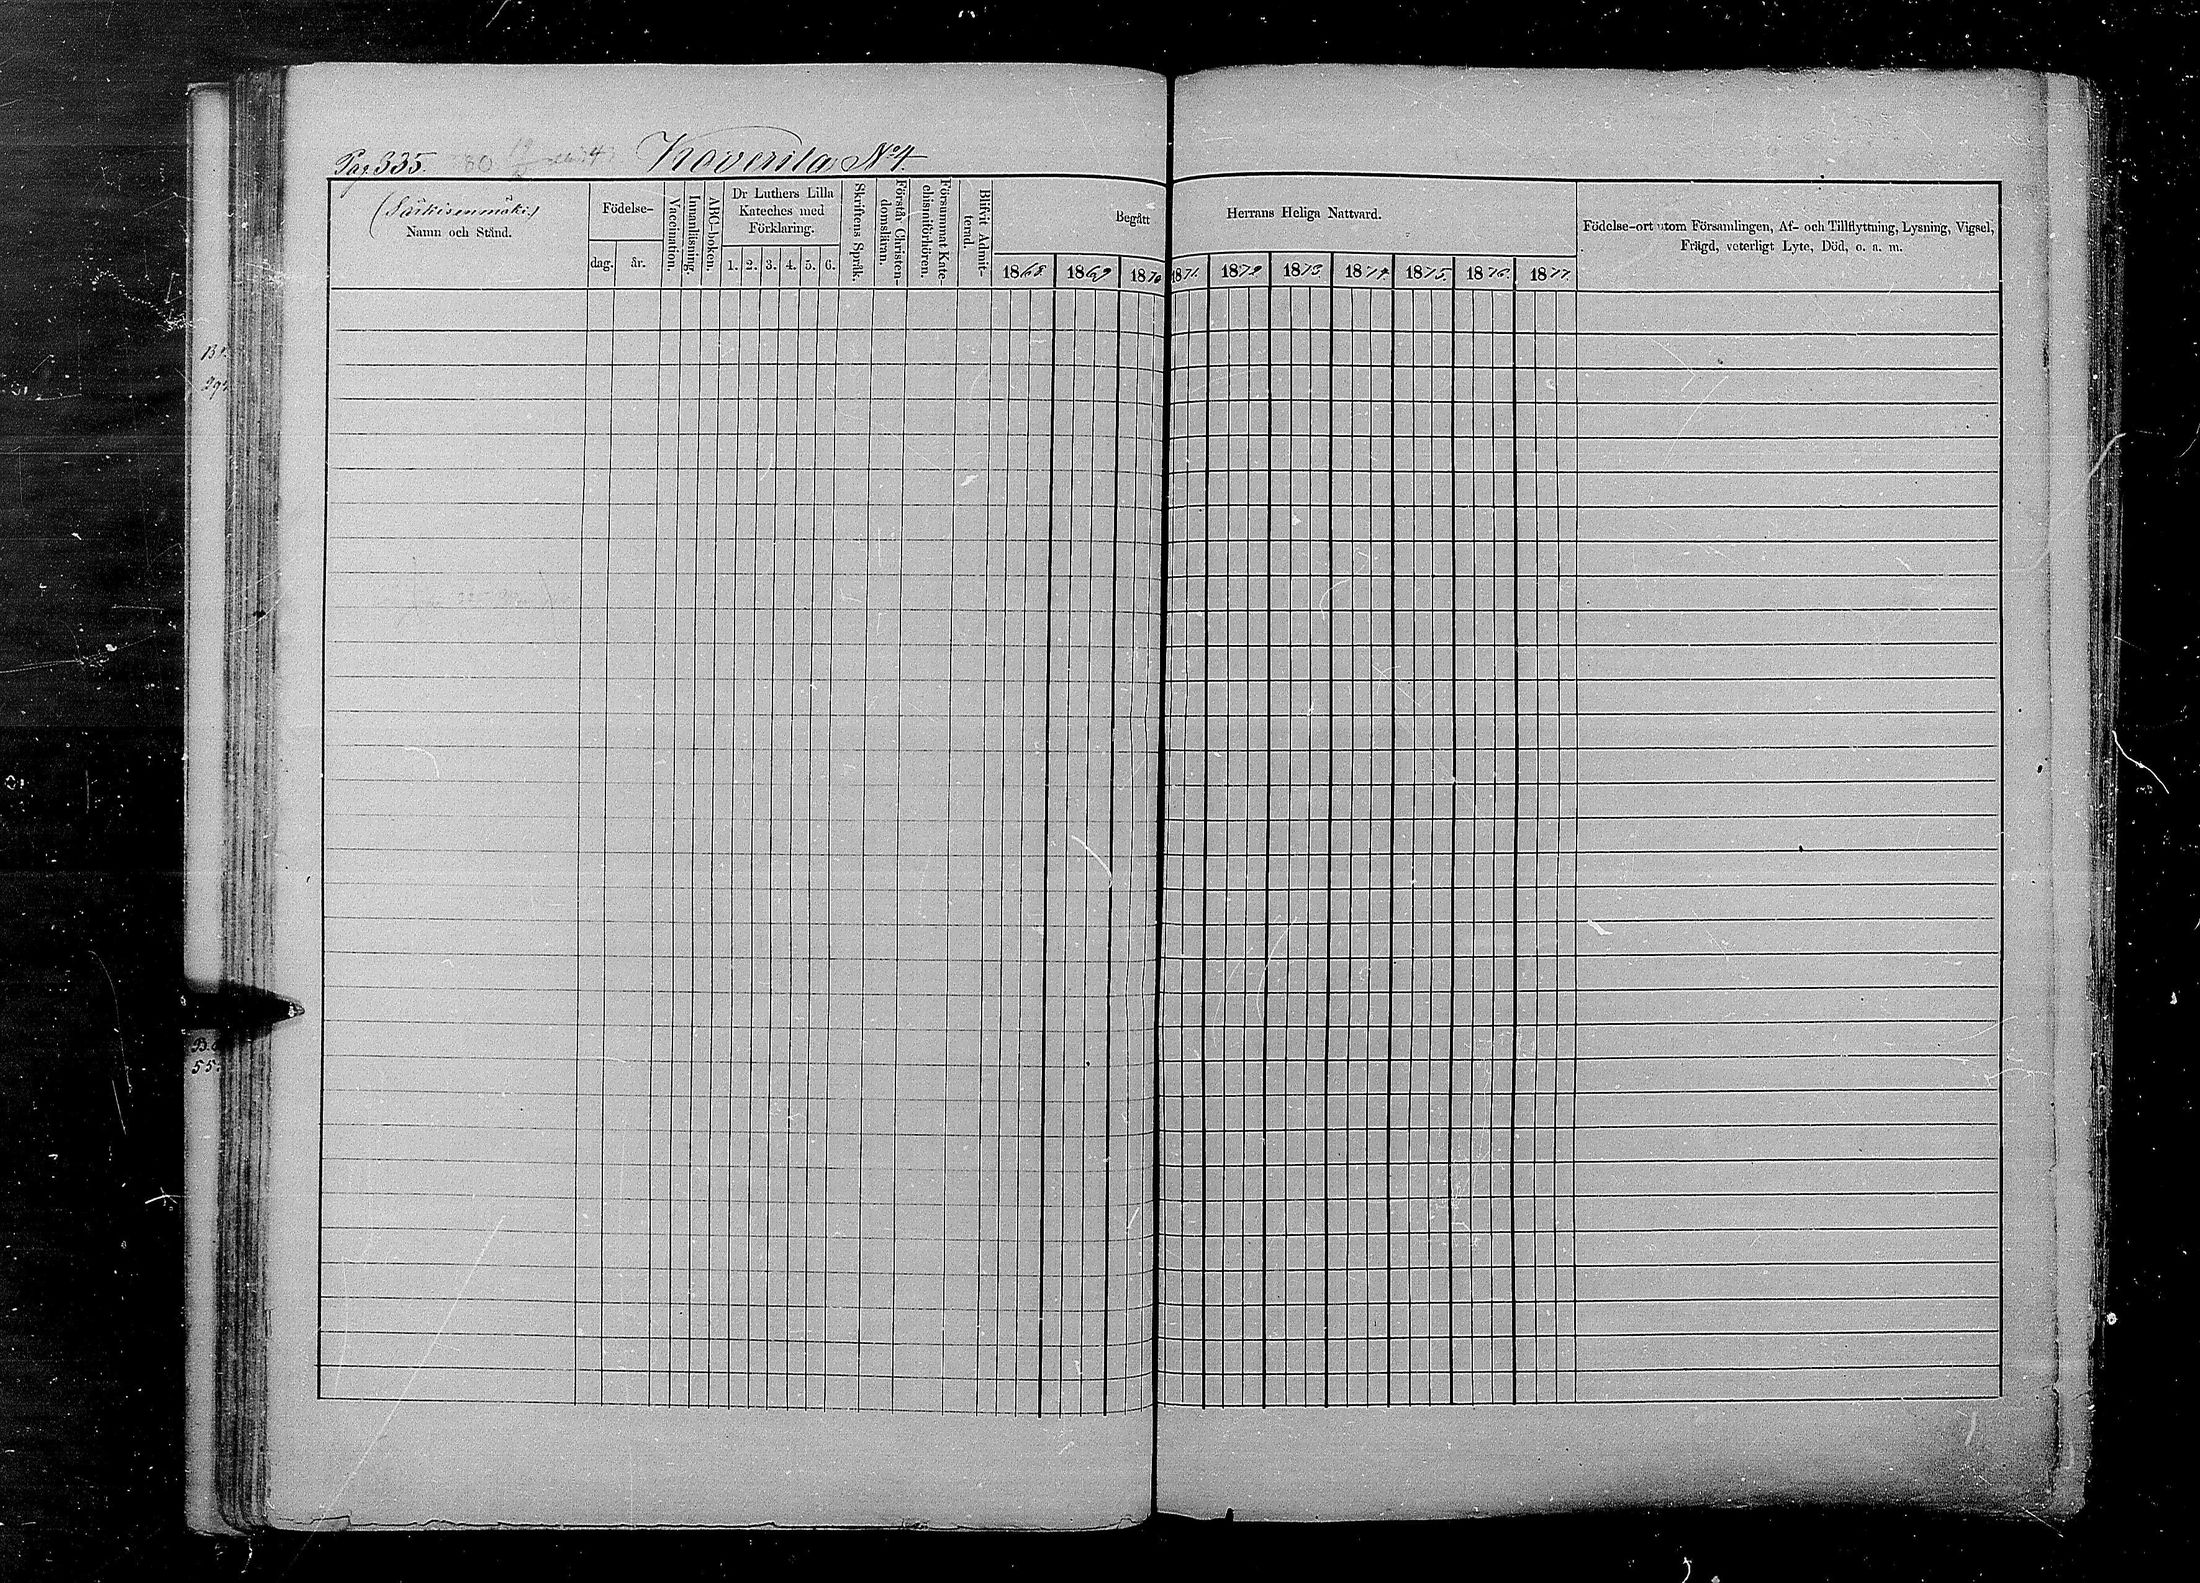 Pag. 335. Koverila No 4.
(Särkisenmäki.)
Namn och Stånd.
Födelse-
dag.
år.
Vaccination.
Innanläsning.
ABC-boken.
Dr Luthers Lilla
Kateches med
Förklaring.
1. 2. 3. 4. 5. 6.
Skriftens Språk.
Förstår Christen-
domslären.
Försummat Kate-
chismiförhören.
Blifvit Admit-
terad.
Begått Herrans Heliga Nattvard.
1868. 1869 1870 1871. 1872. 1873. 1874. 1875. 1876. 1877.
Födelse-ort utom Församlingen, Af- och Tillflyttning, Lysning, Vigsel,
Frägd, veterligt Lyte, Död, o. a. m.
55.